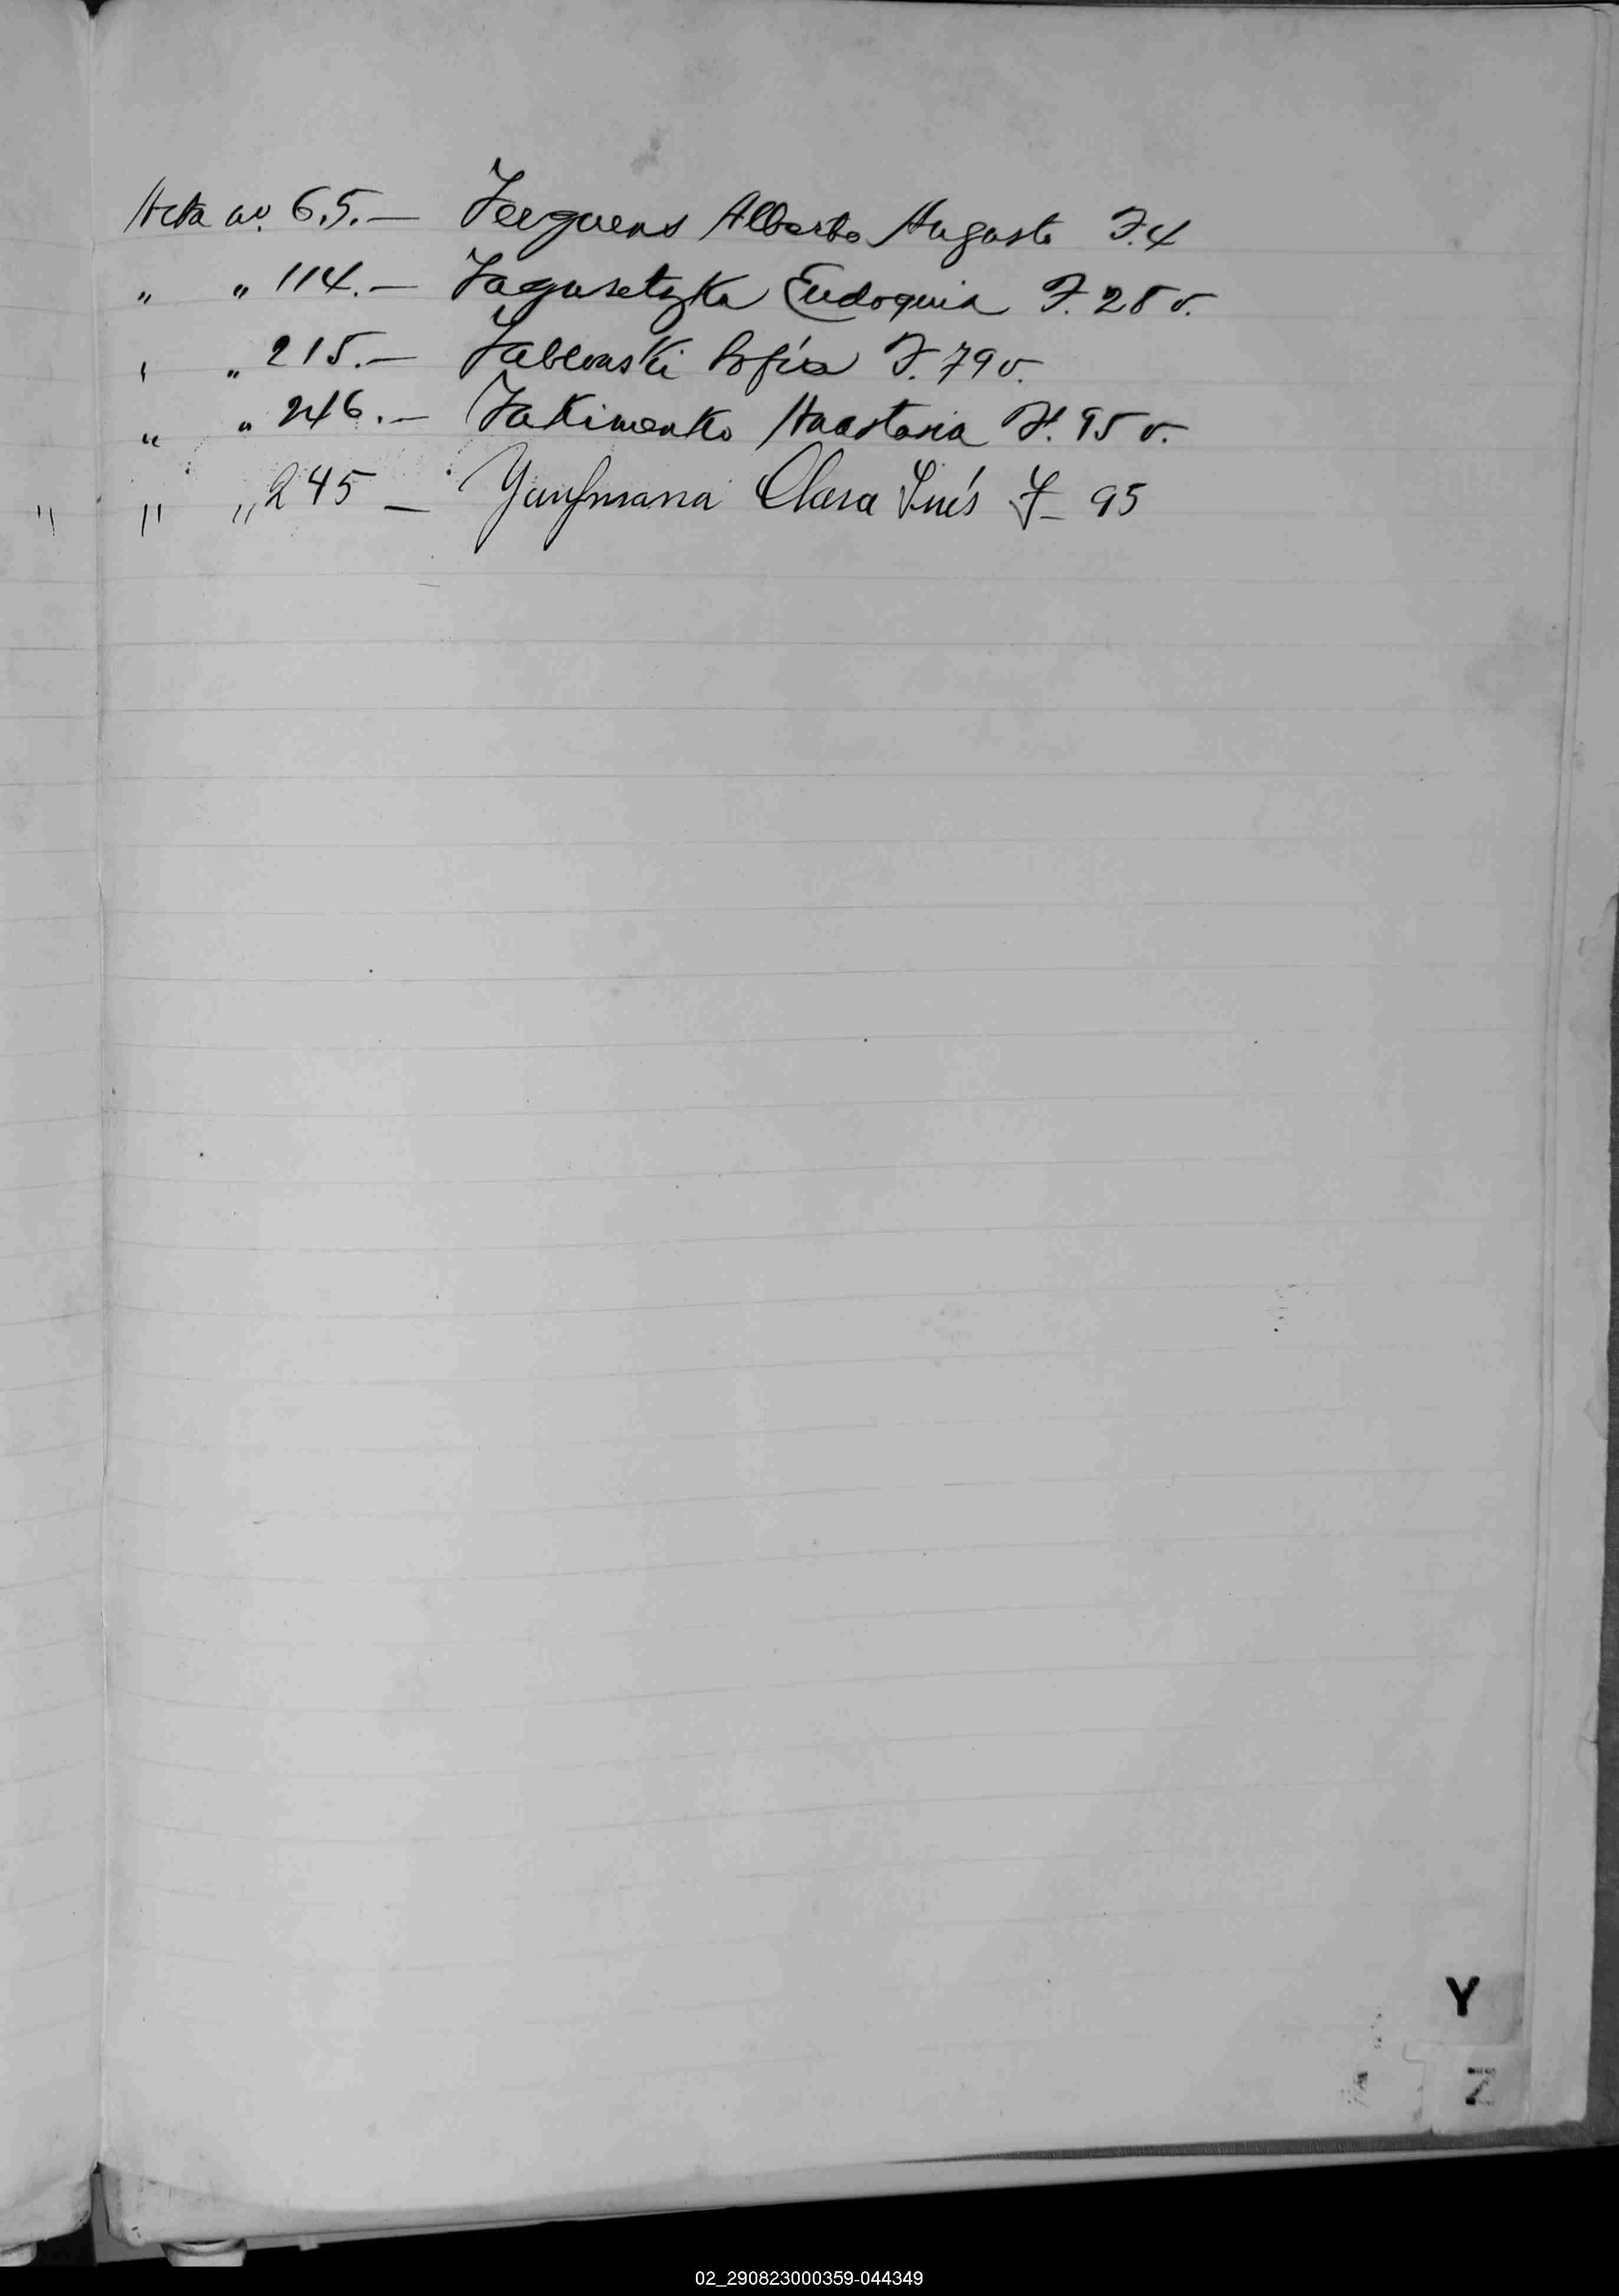 Acta no. 65.— Jeerguens Alberto Augusto F. 4
" " 114.— Jagusetzka Eudoquia F. 28 v.
" " 215.— Jablonski Sofía F. 79 v.
" " 246.— Jakimenko Anastasia F. 95 v.
" " " 245 — Yaufmann Clara Inés F— 95
Y
Z
02_290823000359-044349